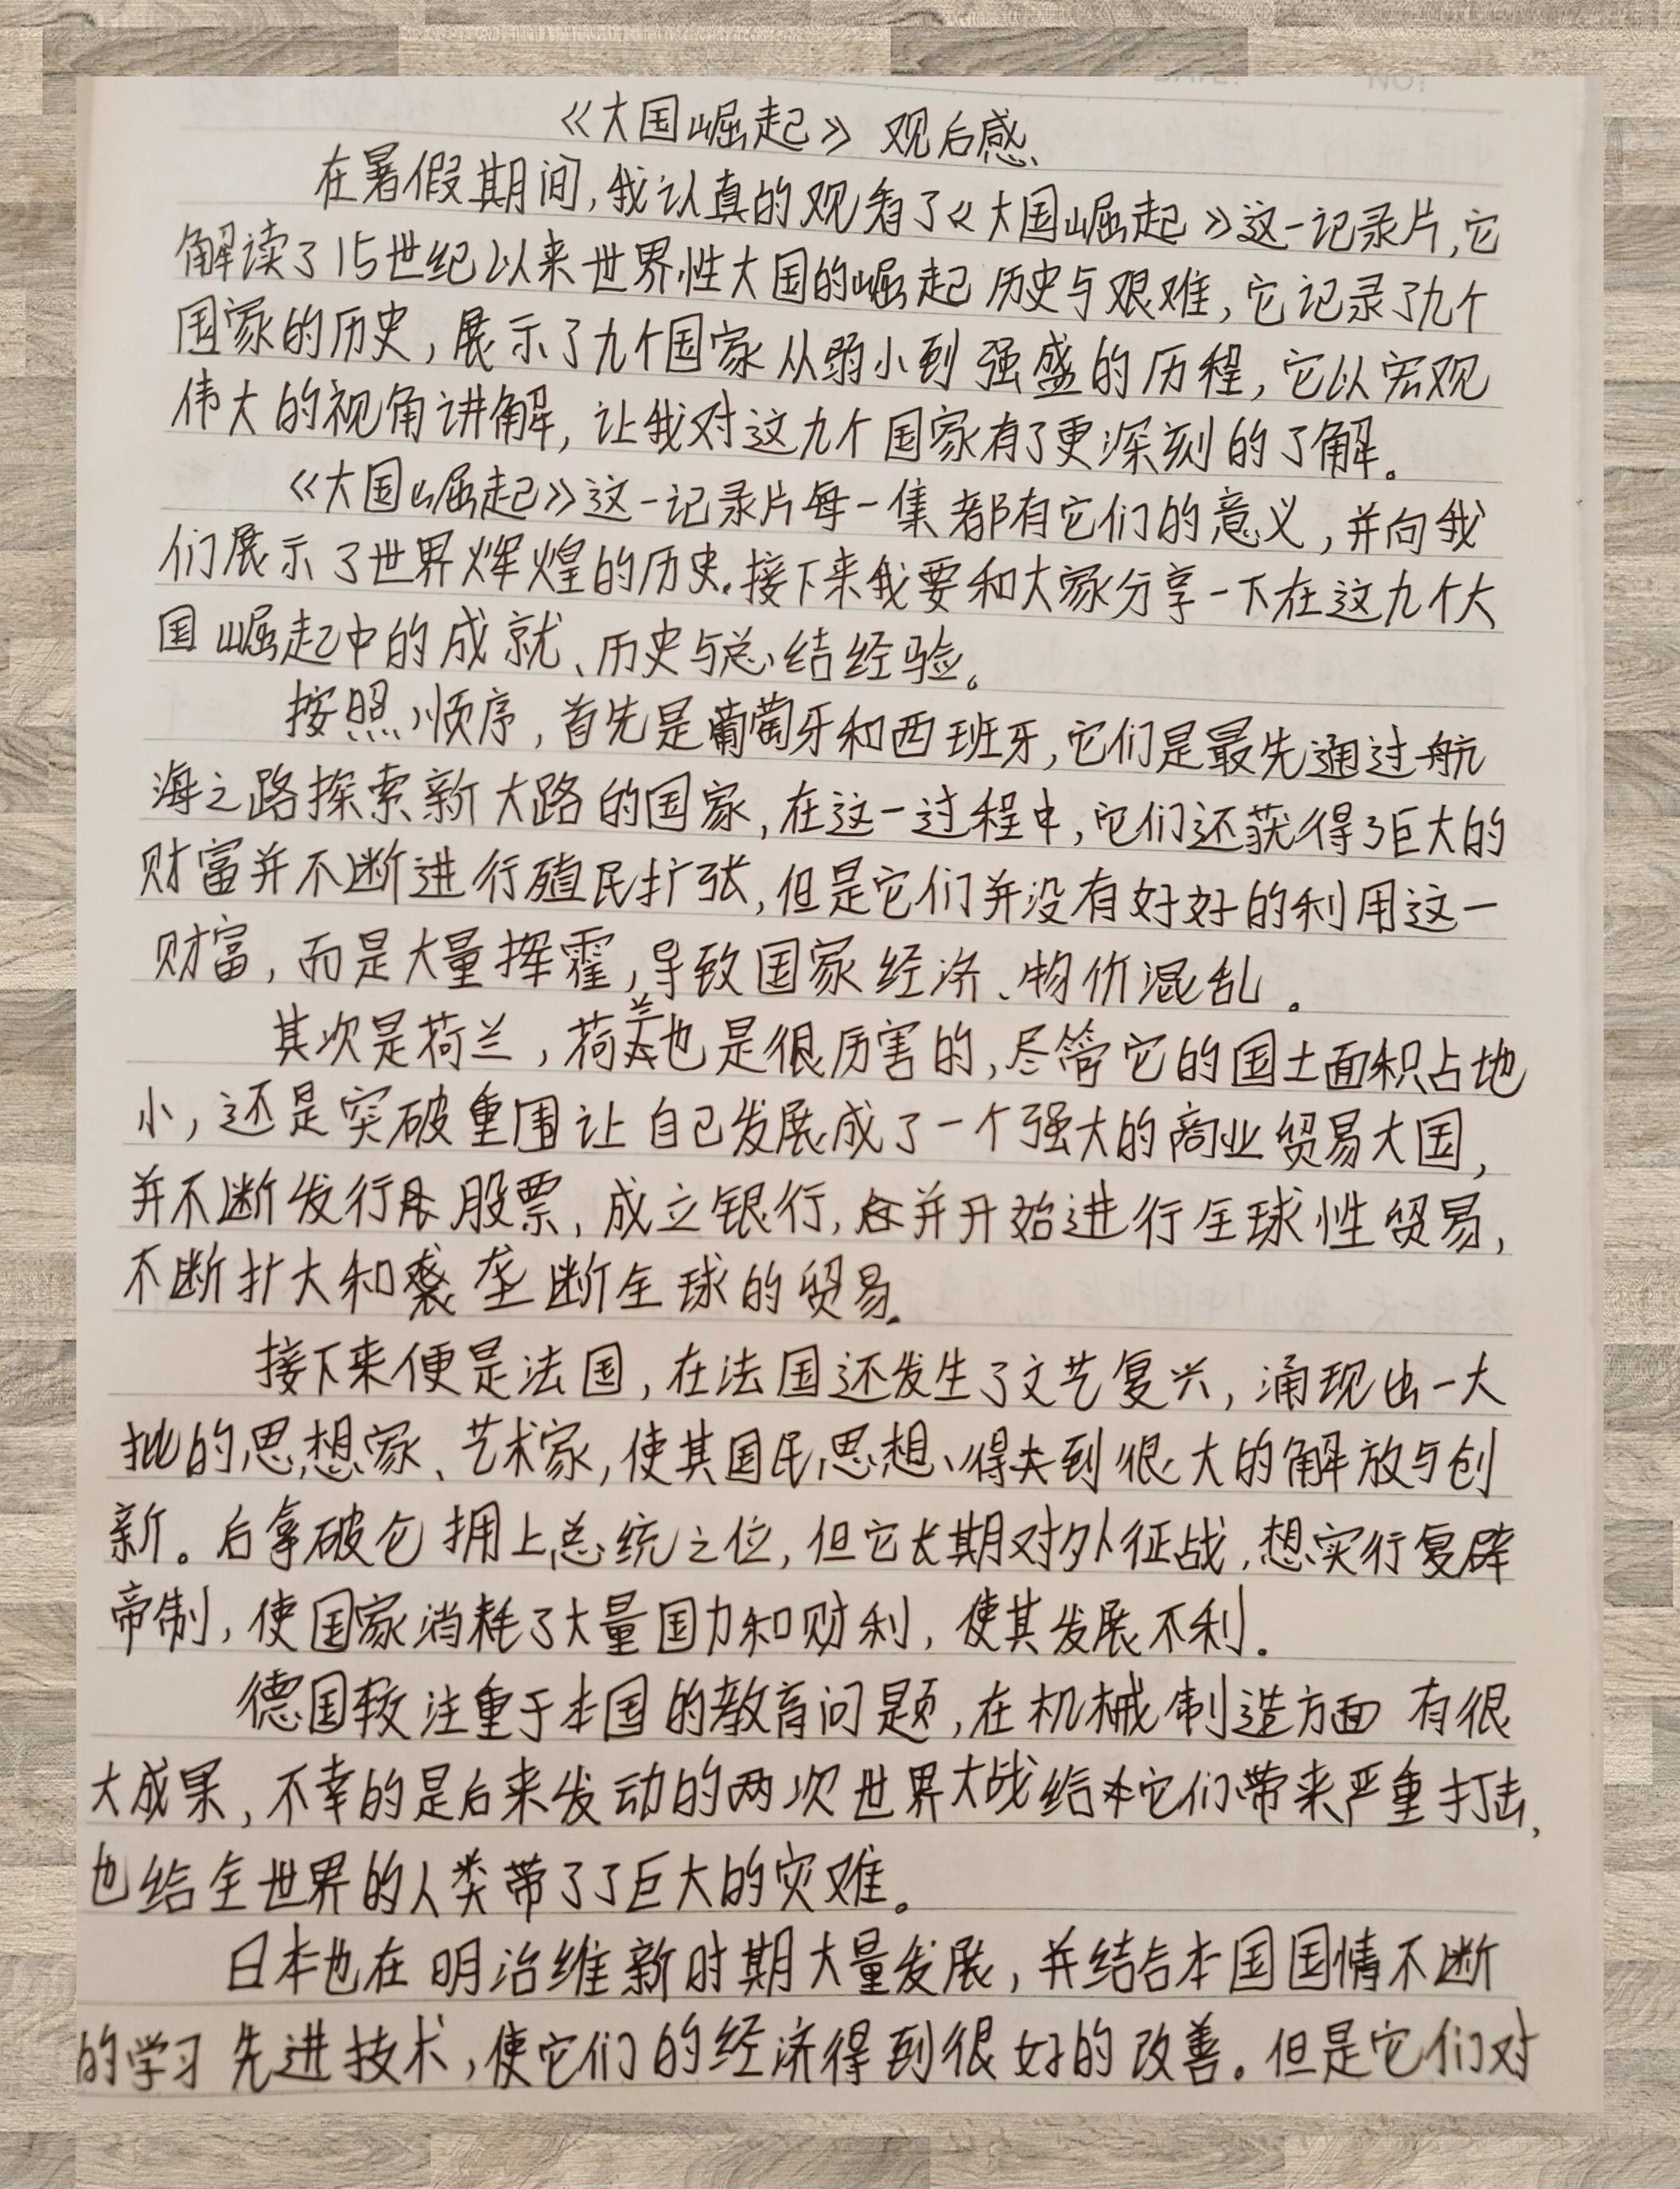 《大国崛起》 观后感
在暑假期间,我认真的观看了《大国崛起》这一记录片,它
解读了15世纪以来世界性大国的崛起历史与艰难,它记录了九个
国家的历史,展示了九个国家从弱小到强盛的历程,它以宏观
伟大的视角讲解,让我对这九个国家有了更深刻的了解。
《大国崛起》这一记录片每一集都有它们的意义,并向我
们展示了世界辉煌的历史.接下来我要和大家分享一下在这九个大
国崛起中的成就、历史与总结经验。
按照顺序,首先是葡萄牙和西班牙,它们是最先通过航
海之路探索新大路的国家,在这一过程中,它们还获得了巨大的
财富并不断进行殖民扩张,但是它们并没有好好的利用这一
财富,而是大量挥霍,导致国家经济、物价混乱。
其次是荷兰,荷兰也是很厉害的,尽管它的国土面积占地
小,还是突破重围让自己发展成了一个强大的商业贸易大国,
并不断发行股票,成立银行,并开始进行全球性贸易,
不断扩大和垄断全球的贸易.
接下来便是法国,在法国还发生了文艺复兴,涌现出一大
批的思想家、艺术家,使其国民思想得到很大的解放与创
新。后拿破仑拥上总统之位,但它长期对外征战,想实行复辟
帝制,使国家消耗了大量国力和财利,使其发展不利.
德国较注重于本国的教育问题,在机械制造方面有很
大成果,不幸的是后来发动的两次世界大战给它们带来严重打击,
也给全世界的人类带了了巨大的灾难。
日本也在明治维新时期大量发展,并结合本国国情不断
的学习先进技术,使它们的经济得到很好的改善。但是它们对